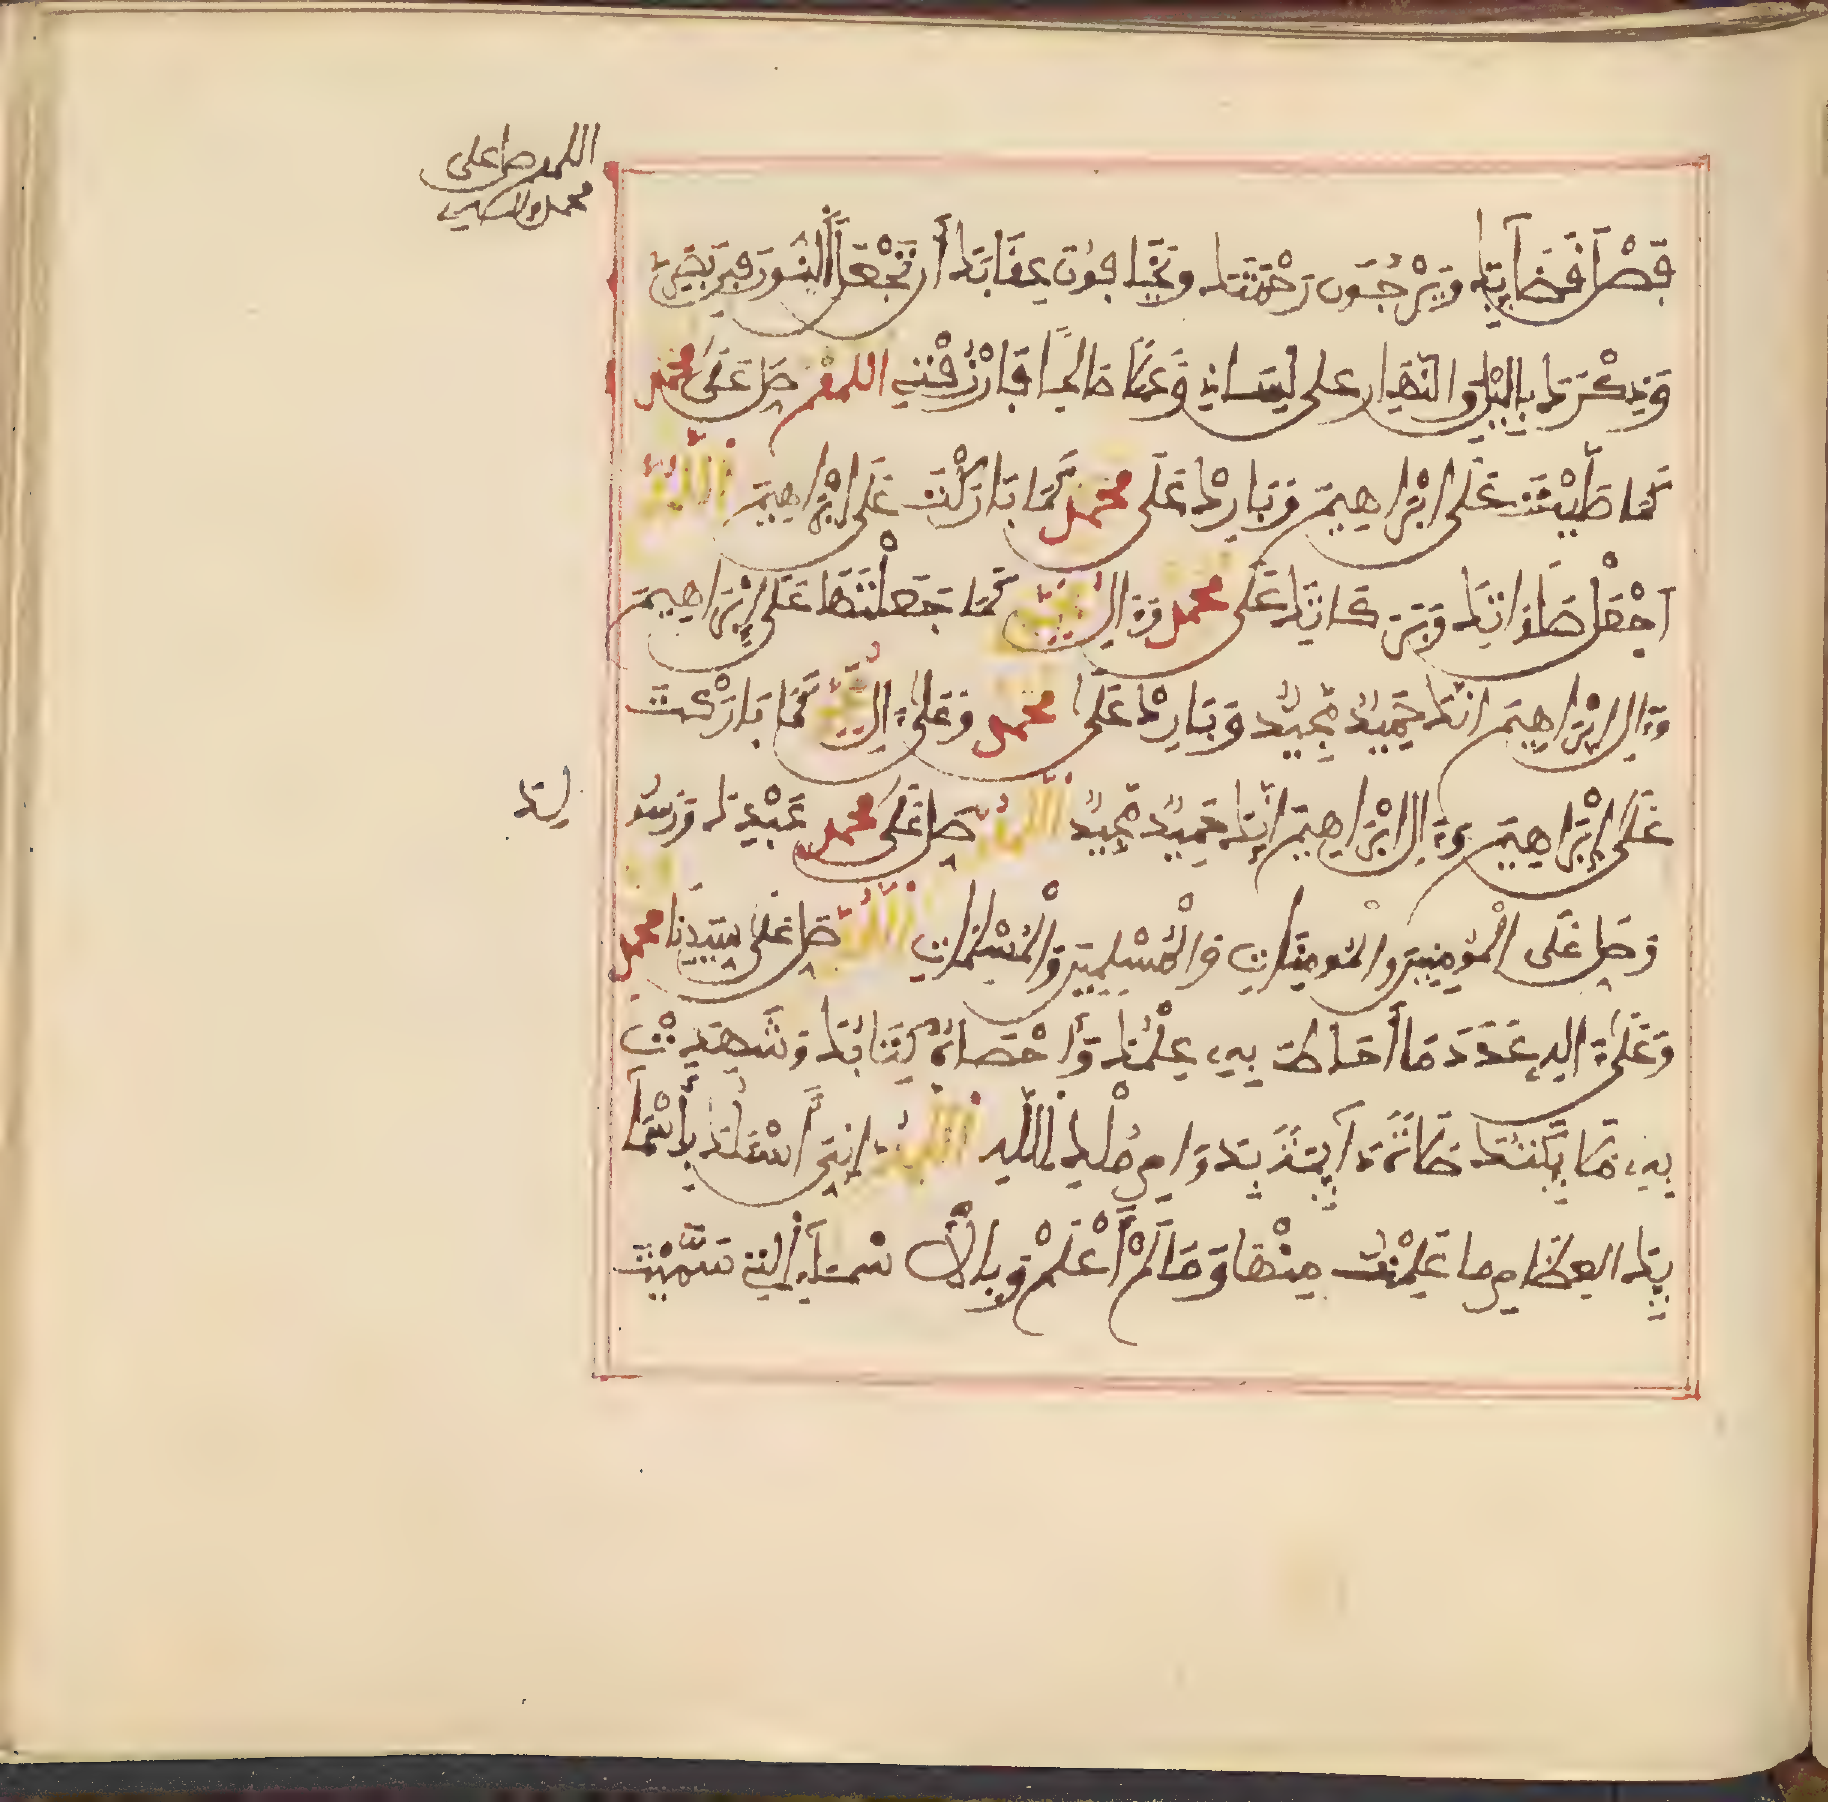 اللهم صل على
محمد وآله وصحبه
فَصْلَ قَضَآئِكَ وَيَرْجُونَ رَحْمَتَكَ وَيَخَافُونَ عِقَابَكَ أَن تَجْعَلَ النُّورَ فِي بَصَرِي
وَذِكْرَكَ بِاليْلِ وَالنَّهَارِ عَلَى لِسَانِي وَعَمَلًا صَالِحًا فَارْزُقْنِي اللهم صَلِّ عَلَى محمد
كَمَا صَلَّيْتَ عَلَى إِبْرَاهِيمَ وَبَارِكْ عَلَى محمد كَمَا بَارَكْتَ عَلَى إِبْرَاهِيمَ اللهم
اجْعَلْ صَلَوَاتِكَ وَبَرَكَاتِكَ عَلَى محمد وَءَالِ محمد كَمَا جَعَلْتَهَا عَلَى إِبْرَاهِيمَ
وَءَالِ إِبْرَاهِيمَ إِنَّكَ حَمِيدٌ مَّجِيدٌ وَبَارِكْ عَلَى محمد وَعَلَى ءَالِ محمد كَمَا بَارَكْتَ
عَلَى إِبْرَاهِيمَ وَءَالِ إِبْرَاهِيمَ إِنَّكَ حَمِيدٌ مَّجِيدٌ اللهم صَلِّ عَلَى محمد عَبْدِكَ وَرَسُو
لِكَ
وَصَلِّ عَلَى الْمُومِنِينَ وَالْمُومِنَاتِ وَالْمُسْلِمِينَ وَالْمُسْلِمَاتِ اللهم صَلِّ عَلَى سَيِّدِنَا محمد
وَعَلَى ءَالِهِ عَدَدَ مَا أَحَاطَ بِهِ عِلْمُكَ وَأَحْصَاهُ كِتَابُكَ وَشَهِدَتْ
بِهِ مَلَائِكَتُكَ صَلَاةً دَآئِمَةً تَدُومُ بِدَوَامِ مُلْكِ اللَّهِ اللهم إِنِّي أَسْئَلُكَ بِأَسْمَا
ئِكَ العِظَامِ مَا عَلِمْتُ مِنْهَا وَمَا لَمْ أَعْلَمْ وَبِالْأَسْمَآءِ الَّتِي سَمَّيْتَ